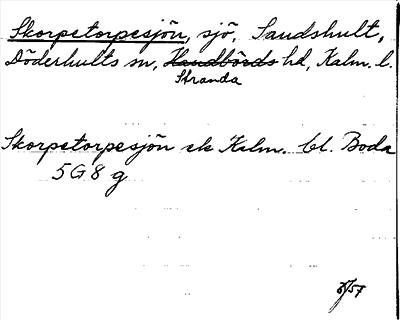 Skorpetorpesjön, sjö, Saudshult,
Döderhults sn, Handbörds hd, Kalm. l.
Stranda
Skorpetorpesjön ek Kalm. bl. Boda
5G8g